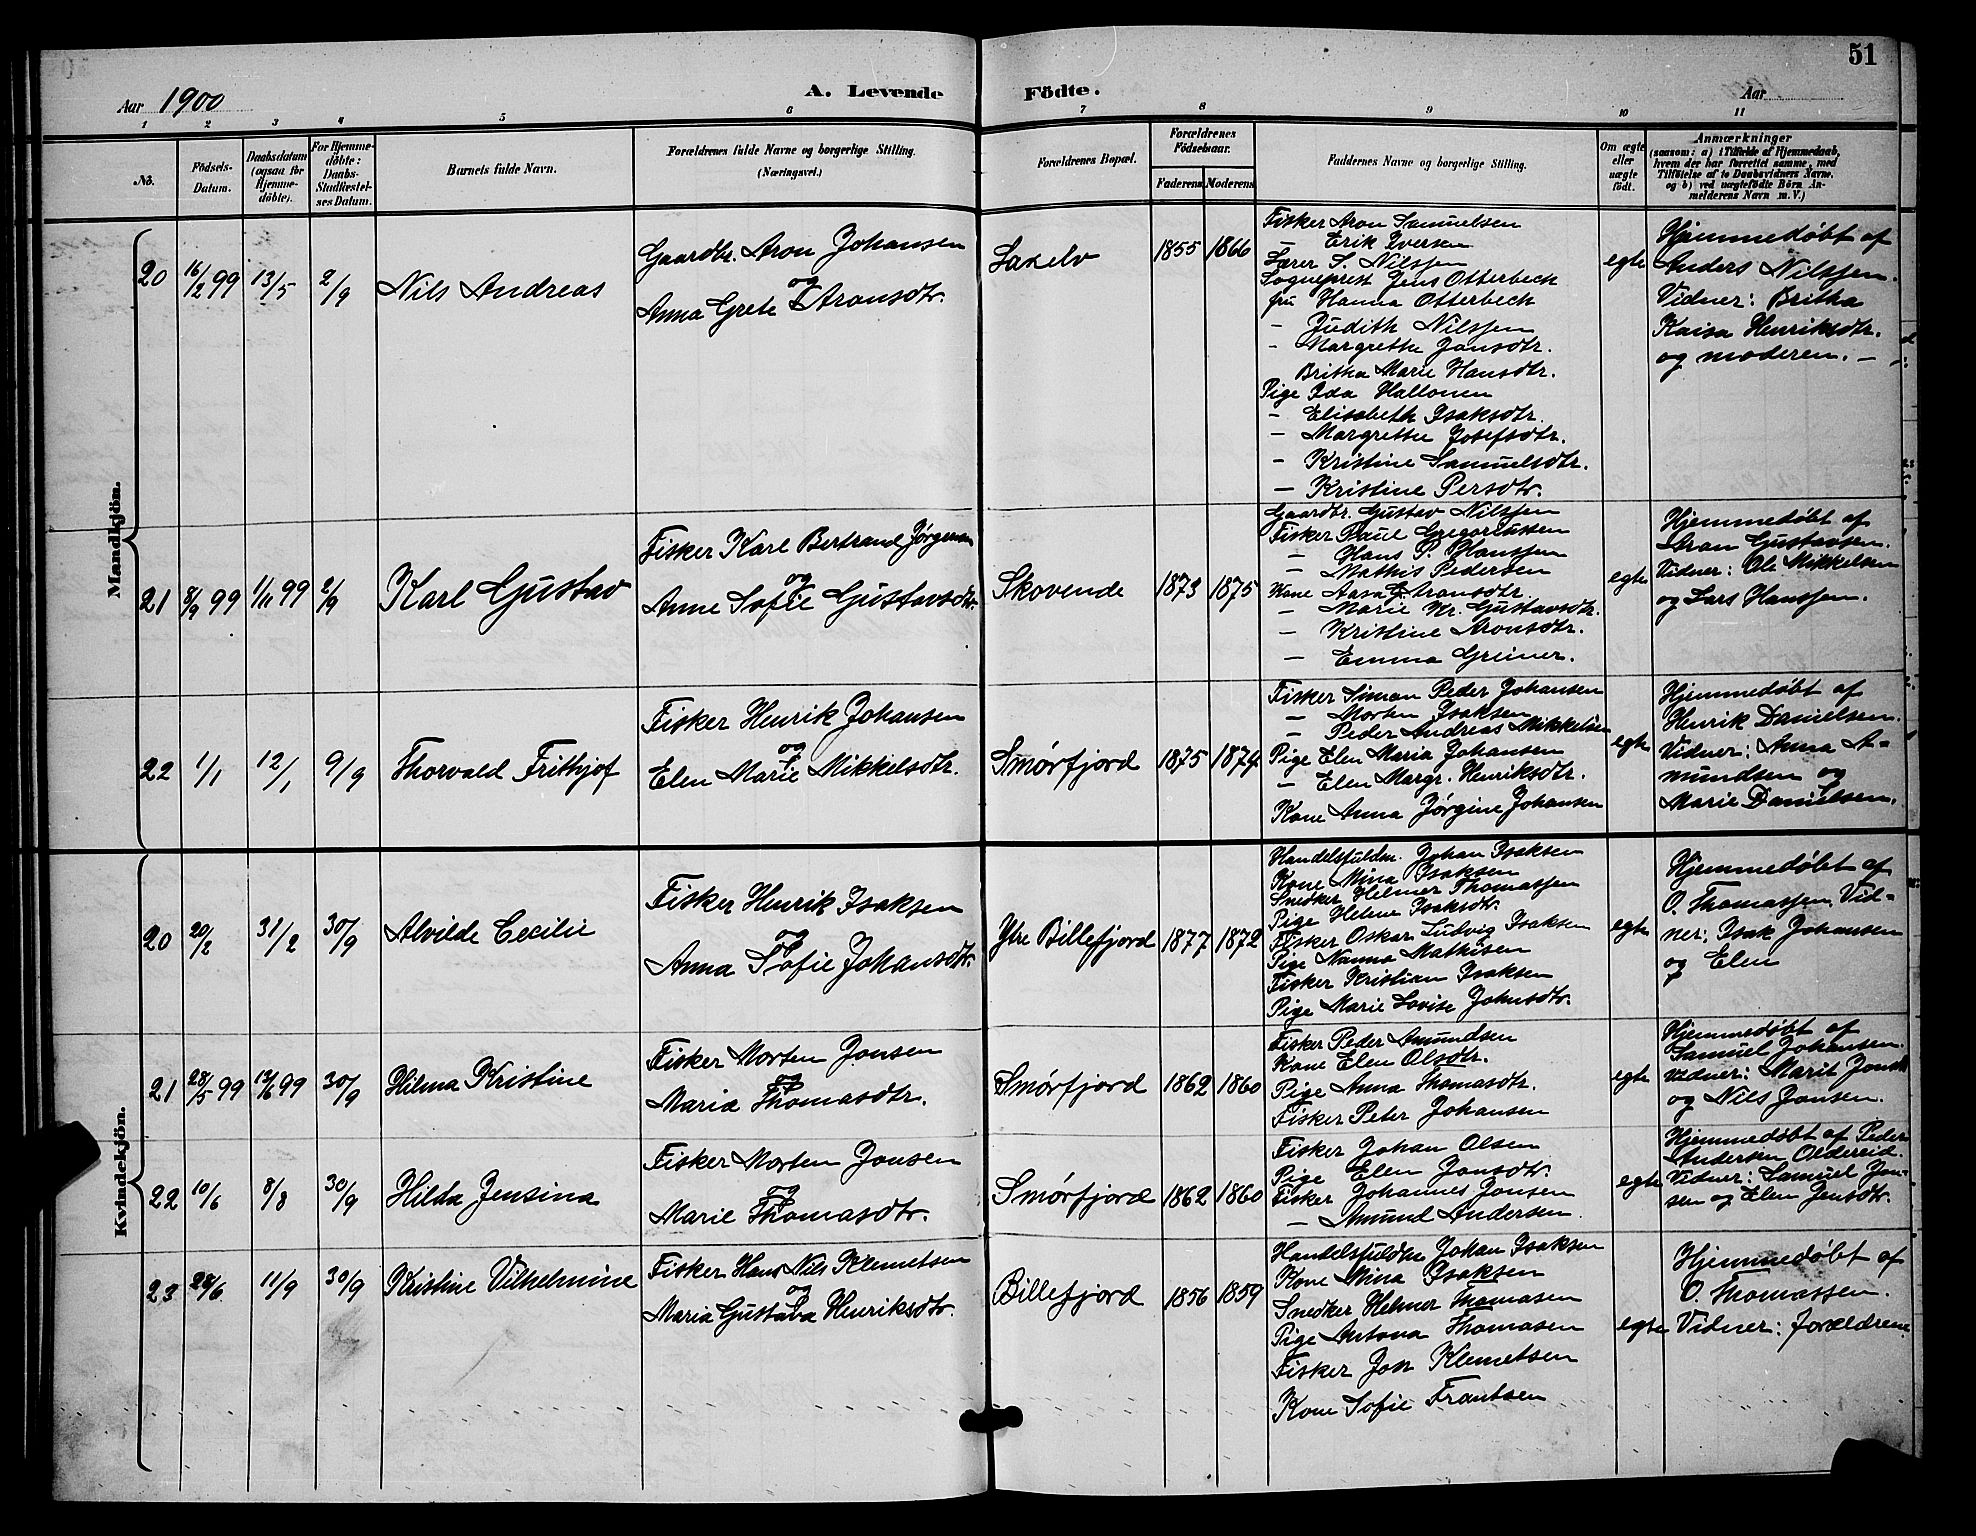 51
Aar 1900
A. Levende Födte.
Aar
1 2 3 4 5 6 7 8 9 10 11
No.
Födsels-
Datum.
Daabsdatum
(ogsaa for
Hjemme-
döbte).
For Hjemme-
döbte:
Daabs-
Stadfæstel-
ses Datum.
Barnets fulde Navn.
Forældrenes fulde Navne og borgerlige Stilling.
(Næringsvei.)
Forældrenes Bopæl.
Forældrenes
Födselsaar.
Faderens Moderens
Faddernes Navne og borgerlige Stilling.
Om ægte
eller
uægte
födt.
Anmærkninger
(saasom: a) i Tilfælde af Hjemmedaab,
hvem der har forrettet samme, med
Tilföielse af to Daabsvidners Navne.
og b) ved uægtefödte Börn An-
melderens Navn m. V.)
Mandkjön.
20 16/2 99 13/5 2/9 Nils Andreas
Gaardbr. Aron Johansen
og
Anna Grete Aronsdtr.
Laxelv 1855 1866
Fisker Aron Samuelsen
– Erik Iversen
Lærer S. Nilssen
Sogneprest Jens Otterbeck
fru Hanna Otterbeck
– Judith Nilssen
– Margrethe Jonsdtr.
Britha Marie Hansdtr.
Pige Ida Hallonen
– Elisabeth Isaksdtr.
– Margrethe Josefsdtr.
– Kristine Samuelsdtr.
– Kristine Persdtr.
egte
Hjemmedøbt af
Anders Nilssen.
Vidner: Britha
Kaisa Henriksdtr.
og moderen. –
21 8/9 99 1/11 99 2/9 Karl Gustav
Fisker Karl Bertrand Jørgensen
og
Anne Sofie Gustavsdtr.
Skovende 1873 1875
Gaardbr. Gustav Nilssen
Fisker Paul Gregoriussen
– Hans P. Hanssen
– Mathis Pedersen
Kone Aasa G. Aronsdtr.
– Marie Kr. Gustavsdtr.
– Kristine Aronsdtr.
– Emma Greiner.
egte
Hjemmedøbt af
Aron Gustavsen.
Vidner: Ole Mikkelsen
og Lars Hanssen.
22 1/1 12/1 9/9 Thorvald Frithjof
Fisker Henrik Johansen
og
Elen Marie Mikkelsdtr.
Smørfjord 1875 1874
Fisker Simon Peder Johansen
– Morten Isaksen
– Peder Andreas Mikkelsen
Pige Elen Maria Johansen
– Elen Margr. Henriksdtr.
Kone Anna Jørgine Johansen
egte
Hjemmedøbt af
Henrik Danielsen.
Vidner: Anna A-
mundsen og
Marie Danielsen.
Kvindekjön.
20 20/2 31/2 30/9 Alvilde Cecilie
Fisker Henrik Isaksen
og
Anna Sofie Johansdtr.
Ytre Billefjord 1877 1872
Handelsfuldm. Johan Isaksen
Kone Mina Isaksen
Snedker Helmer Thomassen
Pige Helene Isaksdtr.
Fisker Oskar Ludvig Isaksen
Pige Nanna Mathisen
Fisker Kristian Isaksen
Pige Marie Lovise Johnsdtr.
egte
Hjemmedøbt af
O. Thomassen. Vid-
ner: Isak Johansen
og Elen
21 28/5 99 12/6 99 30/9 Hilma Kristine
Fisker Morten Jonsen
og
Maria Thomasdtr.
Smørfjord 1862 1860
Fisker Peder Amundsen
Kone Elen Olsdtr.
Pige Anna Thomasdtr.
Fisker Peter Johansen
egte
Hjemmedøbt af
Samuel Johansen.
Vidner: Marit Jonsdtr
og Nils Jonsen.
22 10/6 8/8 30/9 Hilda Jensina
Fisker Morten Jonsen
og
Marie Thomasdtr.
Smørfjord 1862 1860
Fisker Johan Olsen
Pige Elen Jonsdtr.
Fisker Johannes Jonsen
– Amund Andersen.
egte
Hjemmedøbt af Peder
Andersen Oldereid.
Vidner: Samuel Jon-
sen og Elen Jensdtr.
23 28/6 11/9 30/9 Kristine Vilhelmine
Fisker Hans Nils Klemetsen
og
Maria Gustava Henriksdtr.
Billefjord 1856 1859
Handelsfuldm Johan Isaksen
Kone Mina Isaksen
Snedker Helmer Thomasen
Pige Antona Thomasen
Fisker Jon Klemetsen
Kone Sofie Frantsen
egte
Hjemmedøbt af
O. Thomassen.
Vidner: forældrene